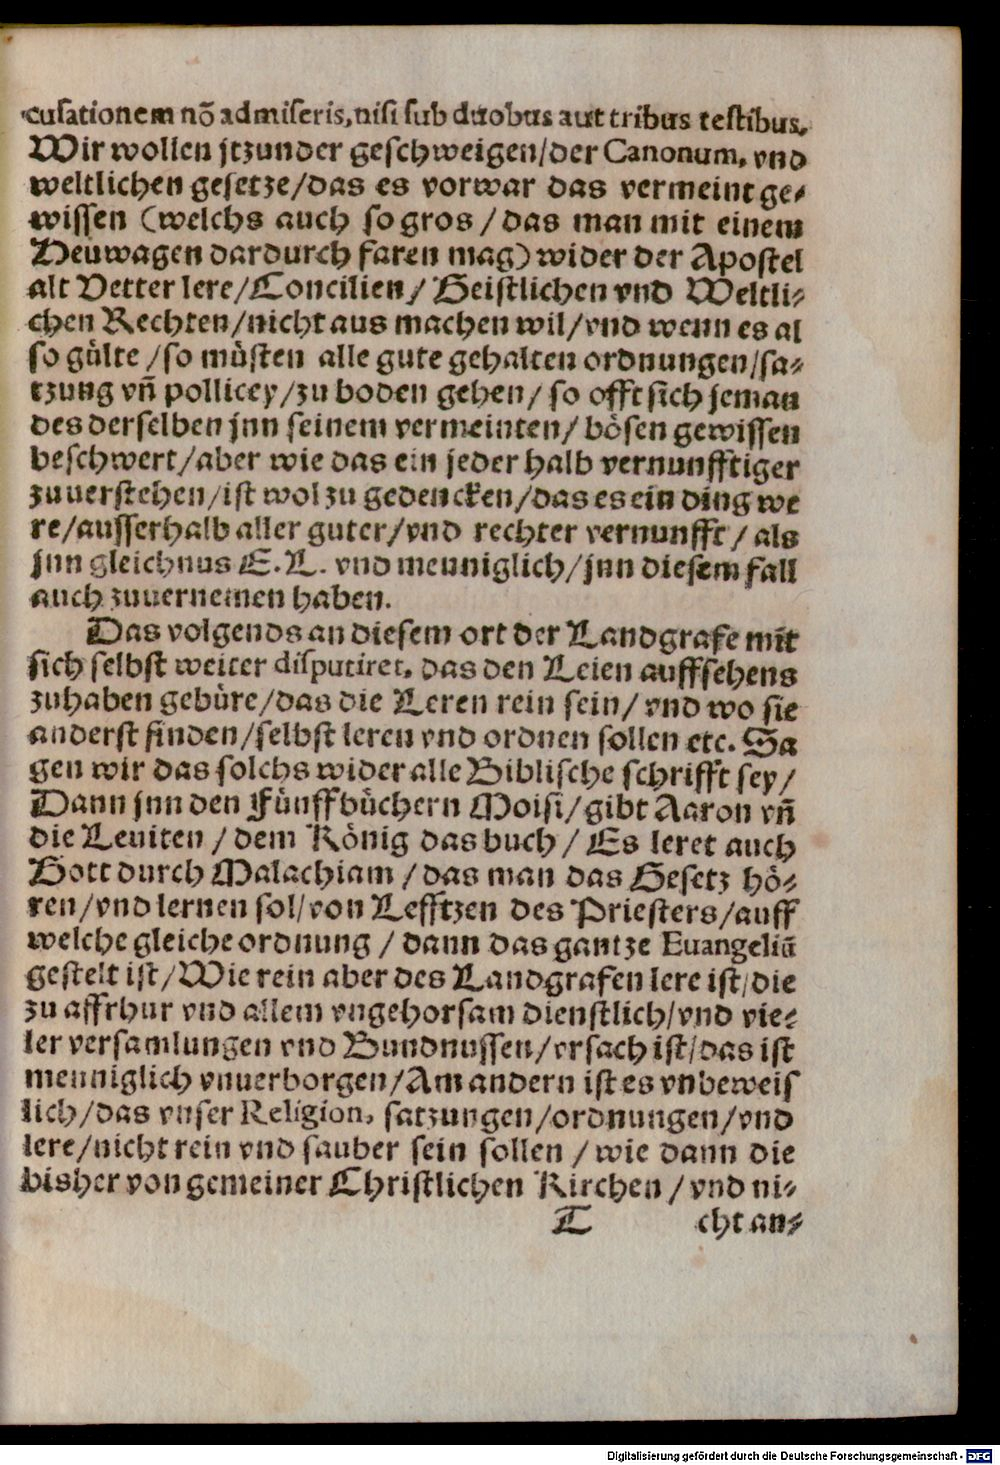 cusationem nõ admiseris, nisi sub duobus aut tribus testibus,
Wir wollen jtzunder geschweigen/der Canonum, vnd
weltlichen gesetze/das es vorwar das vermeint ge-
wissen (welchs auch so gros / das man mit einem
Heuwagen dardurch faren mag) wider der Apostel
alt Vetter lere/Concilien/ Geistlichen vnd Weltli-
chen Rechten/nicht aus machen wil/vnd wenn es al
so gülte /so müsten alle gute gehalten ordnungen/sa-
tzung vñ pollicey/zu boden gehen/ so offt sich jeman
des derselben jnn seinem vermeinten/ bösen gewissen
beschwert/aber wie das ein jeder halb vernunfftiger
zuuerstehen/ist wol zu gedencken/das es ein ding we
re/ausserhalb aller guter/vnd rechter vernunfft / als
jnn gleichnus E.L. vnd menniglich/jnn diesem fall
auch zuuernemen haben.
Das volgends an diesem ort der Landgrafe mit
sich selbst weiter disputiret, das den Leien auffsehens
zuhaben gebüre/das die Leren rein sein/ vnd wo sie
anderst finden/selbst leren vnd ordnen sollen etc. Sa
gen wir das solchs wider alle Biblische schrifft sey/
Dann jnn den Fünffbüchern Moisi/gibt Aaron vñ
die Leuiten / dem König das buch / Es leret auch
Gott durch Malachiam / das man das Gesetz hö-
ren/vnd lernen sol/von Lefftzen des Priesters/auff
welche gleiche ordnung / dann das gantze Euangeliũ
gestelt ist/Wie rein aber des Landgrafen lere ist/die
zu affrhur vnd allem vngehorsam dienstlich/vnd vie-
ler versamlungen vnd Bundnussen/vrsach ist/das ist
menniglich vnuerborgen/Am andern ist es vnbeweis
lich/das vnser Religion, satzungen/ordnungen/vnd
lere/nicht rein vnd sauber sein sollen / wie dann die
bisher von gemeiner Christlichen Kirchen / vnd ni-
T cht an-
Digitalisierung gefördert durch die Deutsche Forschungsgemeinschaft - DFG